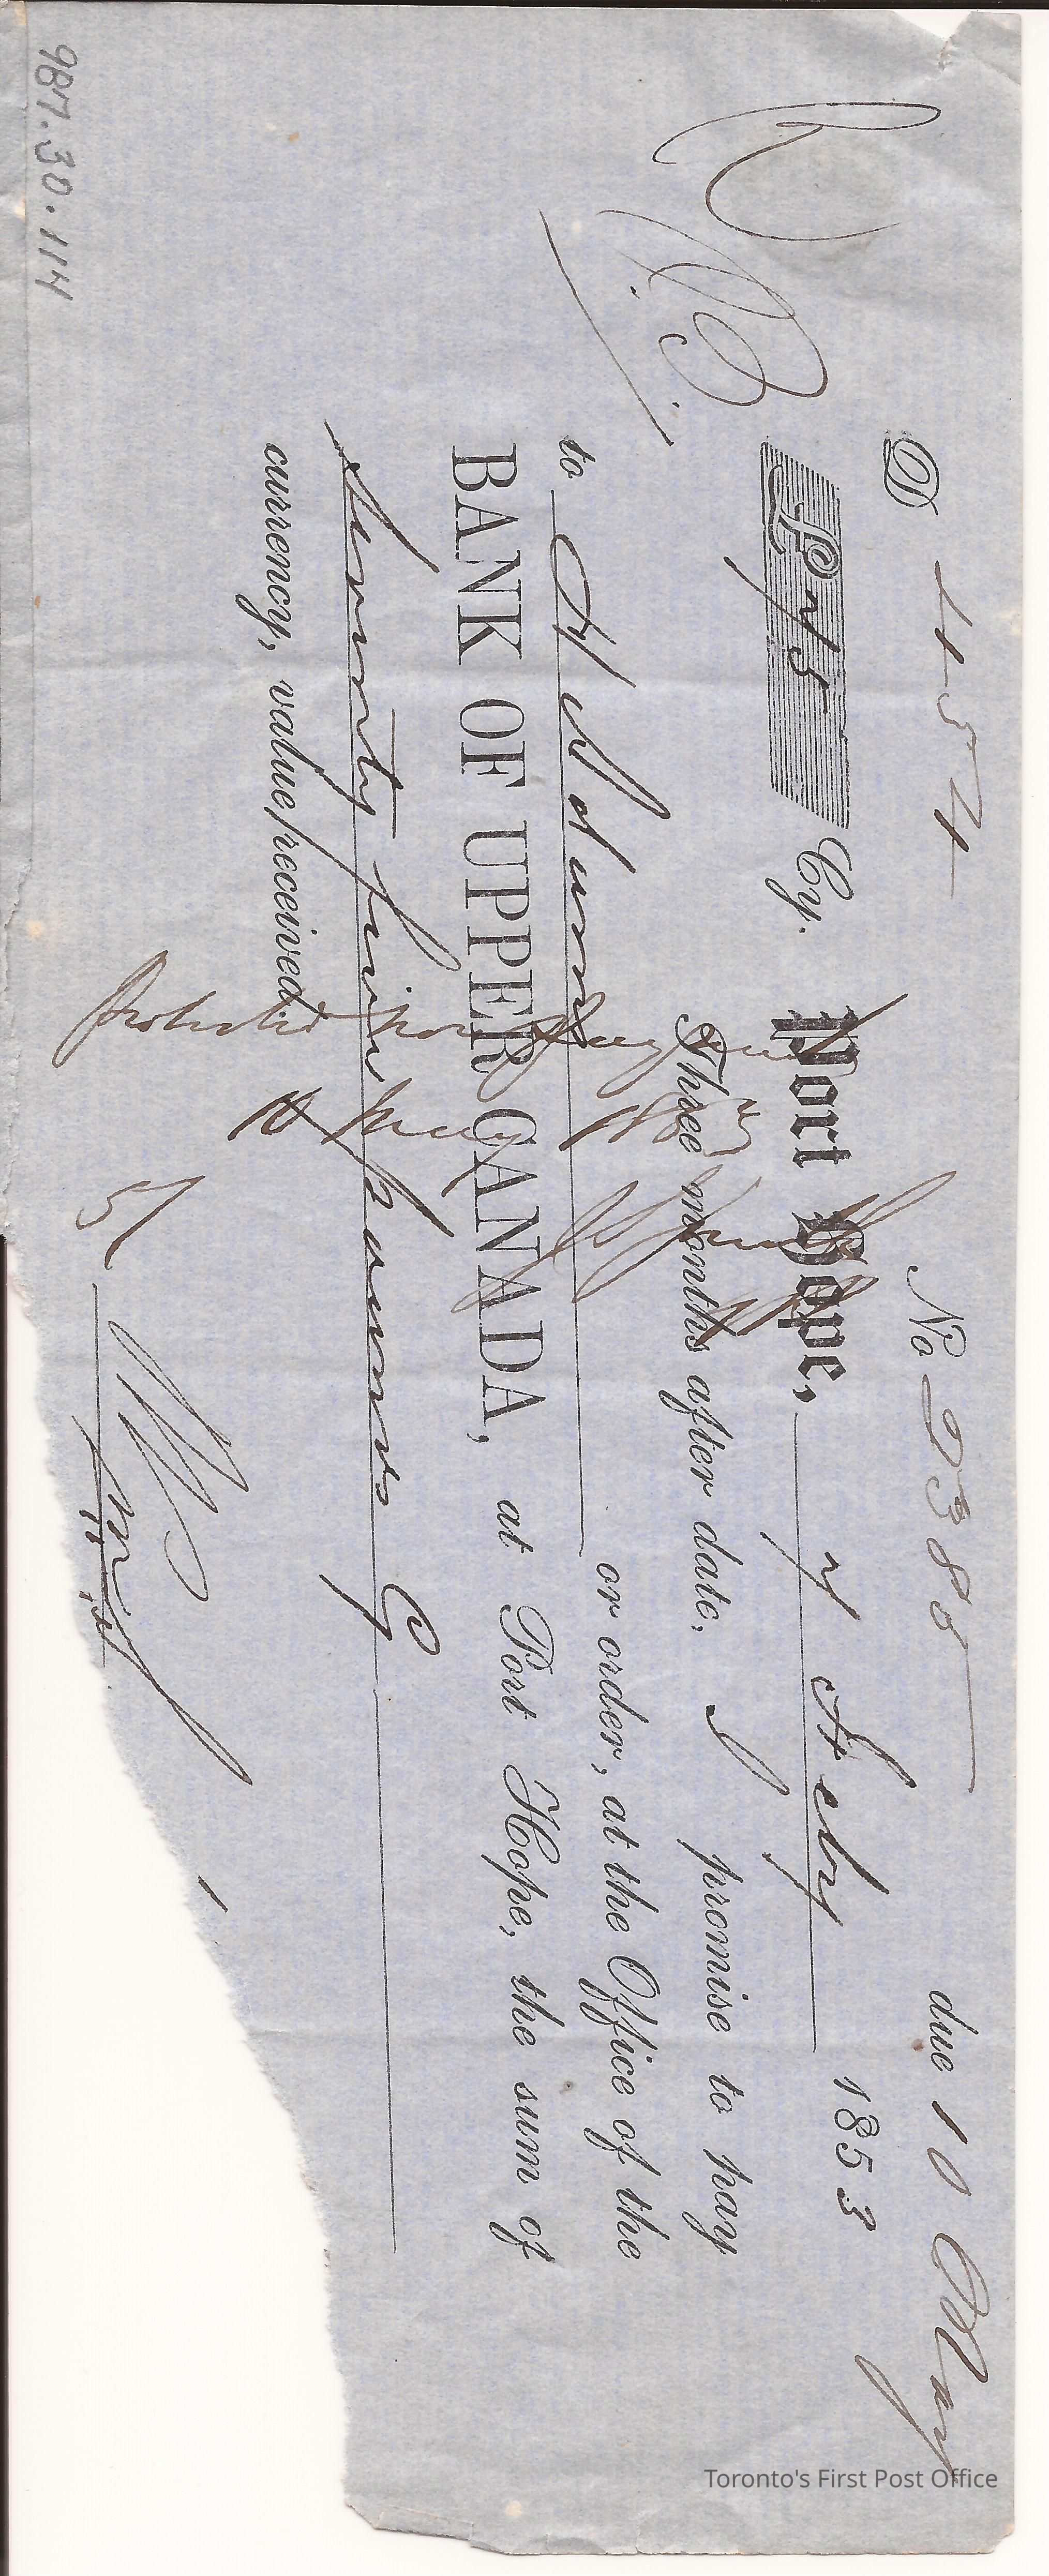 D 454 No 9388 due 10 May
£75 Cy. Port Hope, 7 Feby 1853
Three months after date, I promise to pay
to H Adams or order, at the Office of the
BANK OF UPPER CANADA, at Port Hope, the sum of
Seventy five pounds Cy
currency, value received.
protested non payment
10 May 1853
987.30.114
Toronto's First Post Office